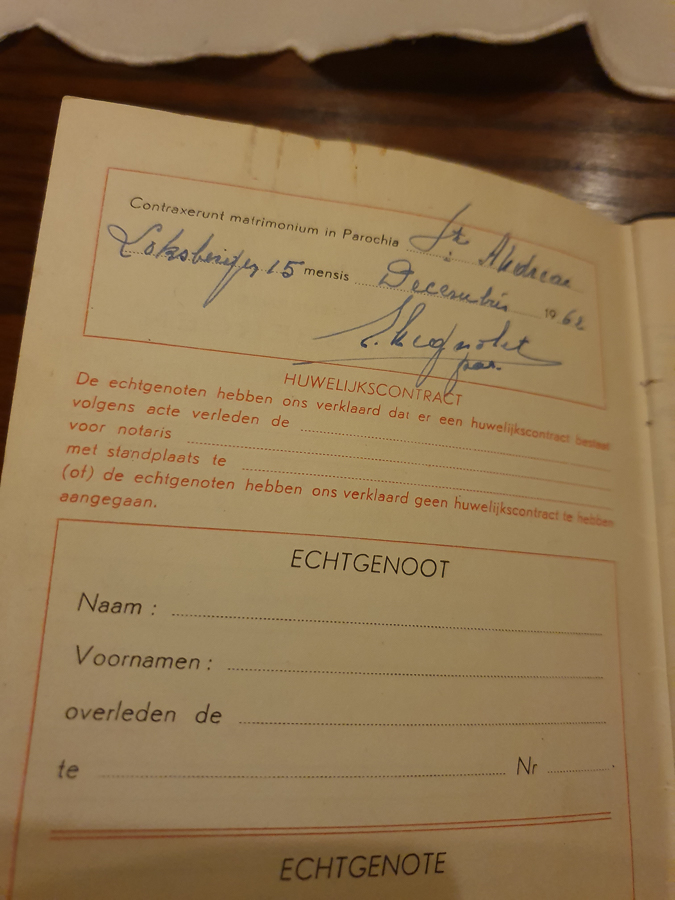 Contraxerunt matrimonium in Parochia St Andreae
Loksbergen 15 mensis Decembris 1962
par.
HUWELIJKSCONTRACT
De echtgenoten hebben ons verklaard dat er een huwelijkscontract bestaat
volgens acte verleden de
voor notaris
met standplaats te
(of) de echtgenoten hebben ons verklaard geen huwelijkscontract te hebben
aangegaan.
ECHTGENOOT
Naam :
Voornamen :
overleden de
te Nr
ECHTGENOTE